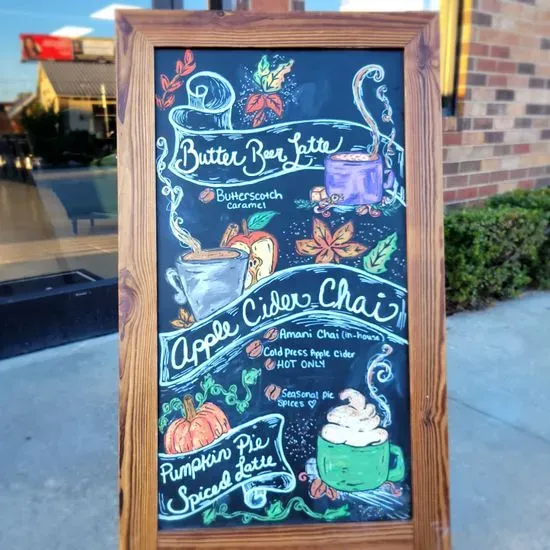 Butter Beer Latte
Butterscotch
Caramel
Apple Cider Chai
Amani Chai (in-house)
Cold Press Apple Cider
HOT ONLY
Seasonal Pie
Spices ♡
Pumpkin Pie
Spiced Latte